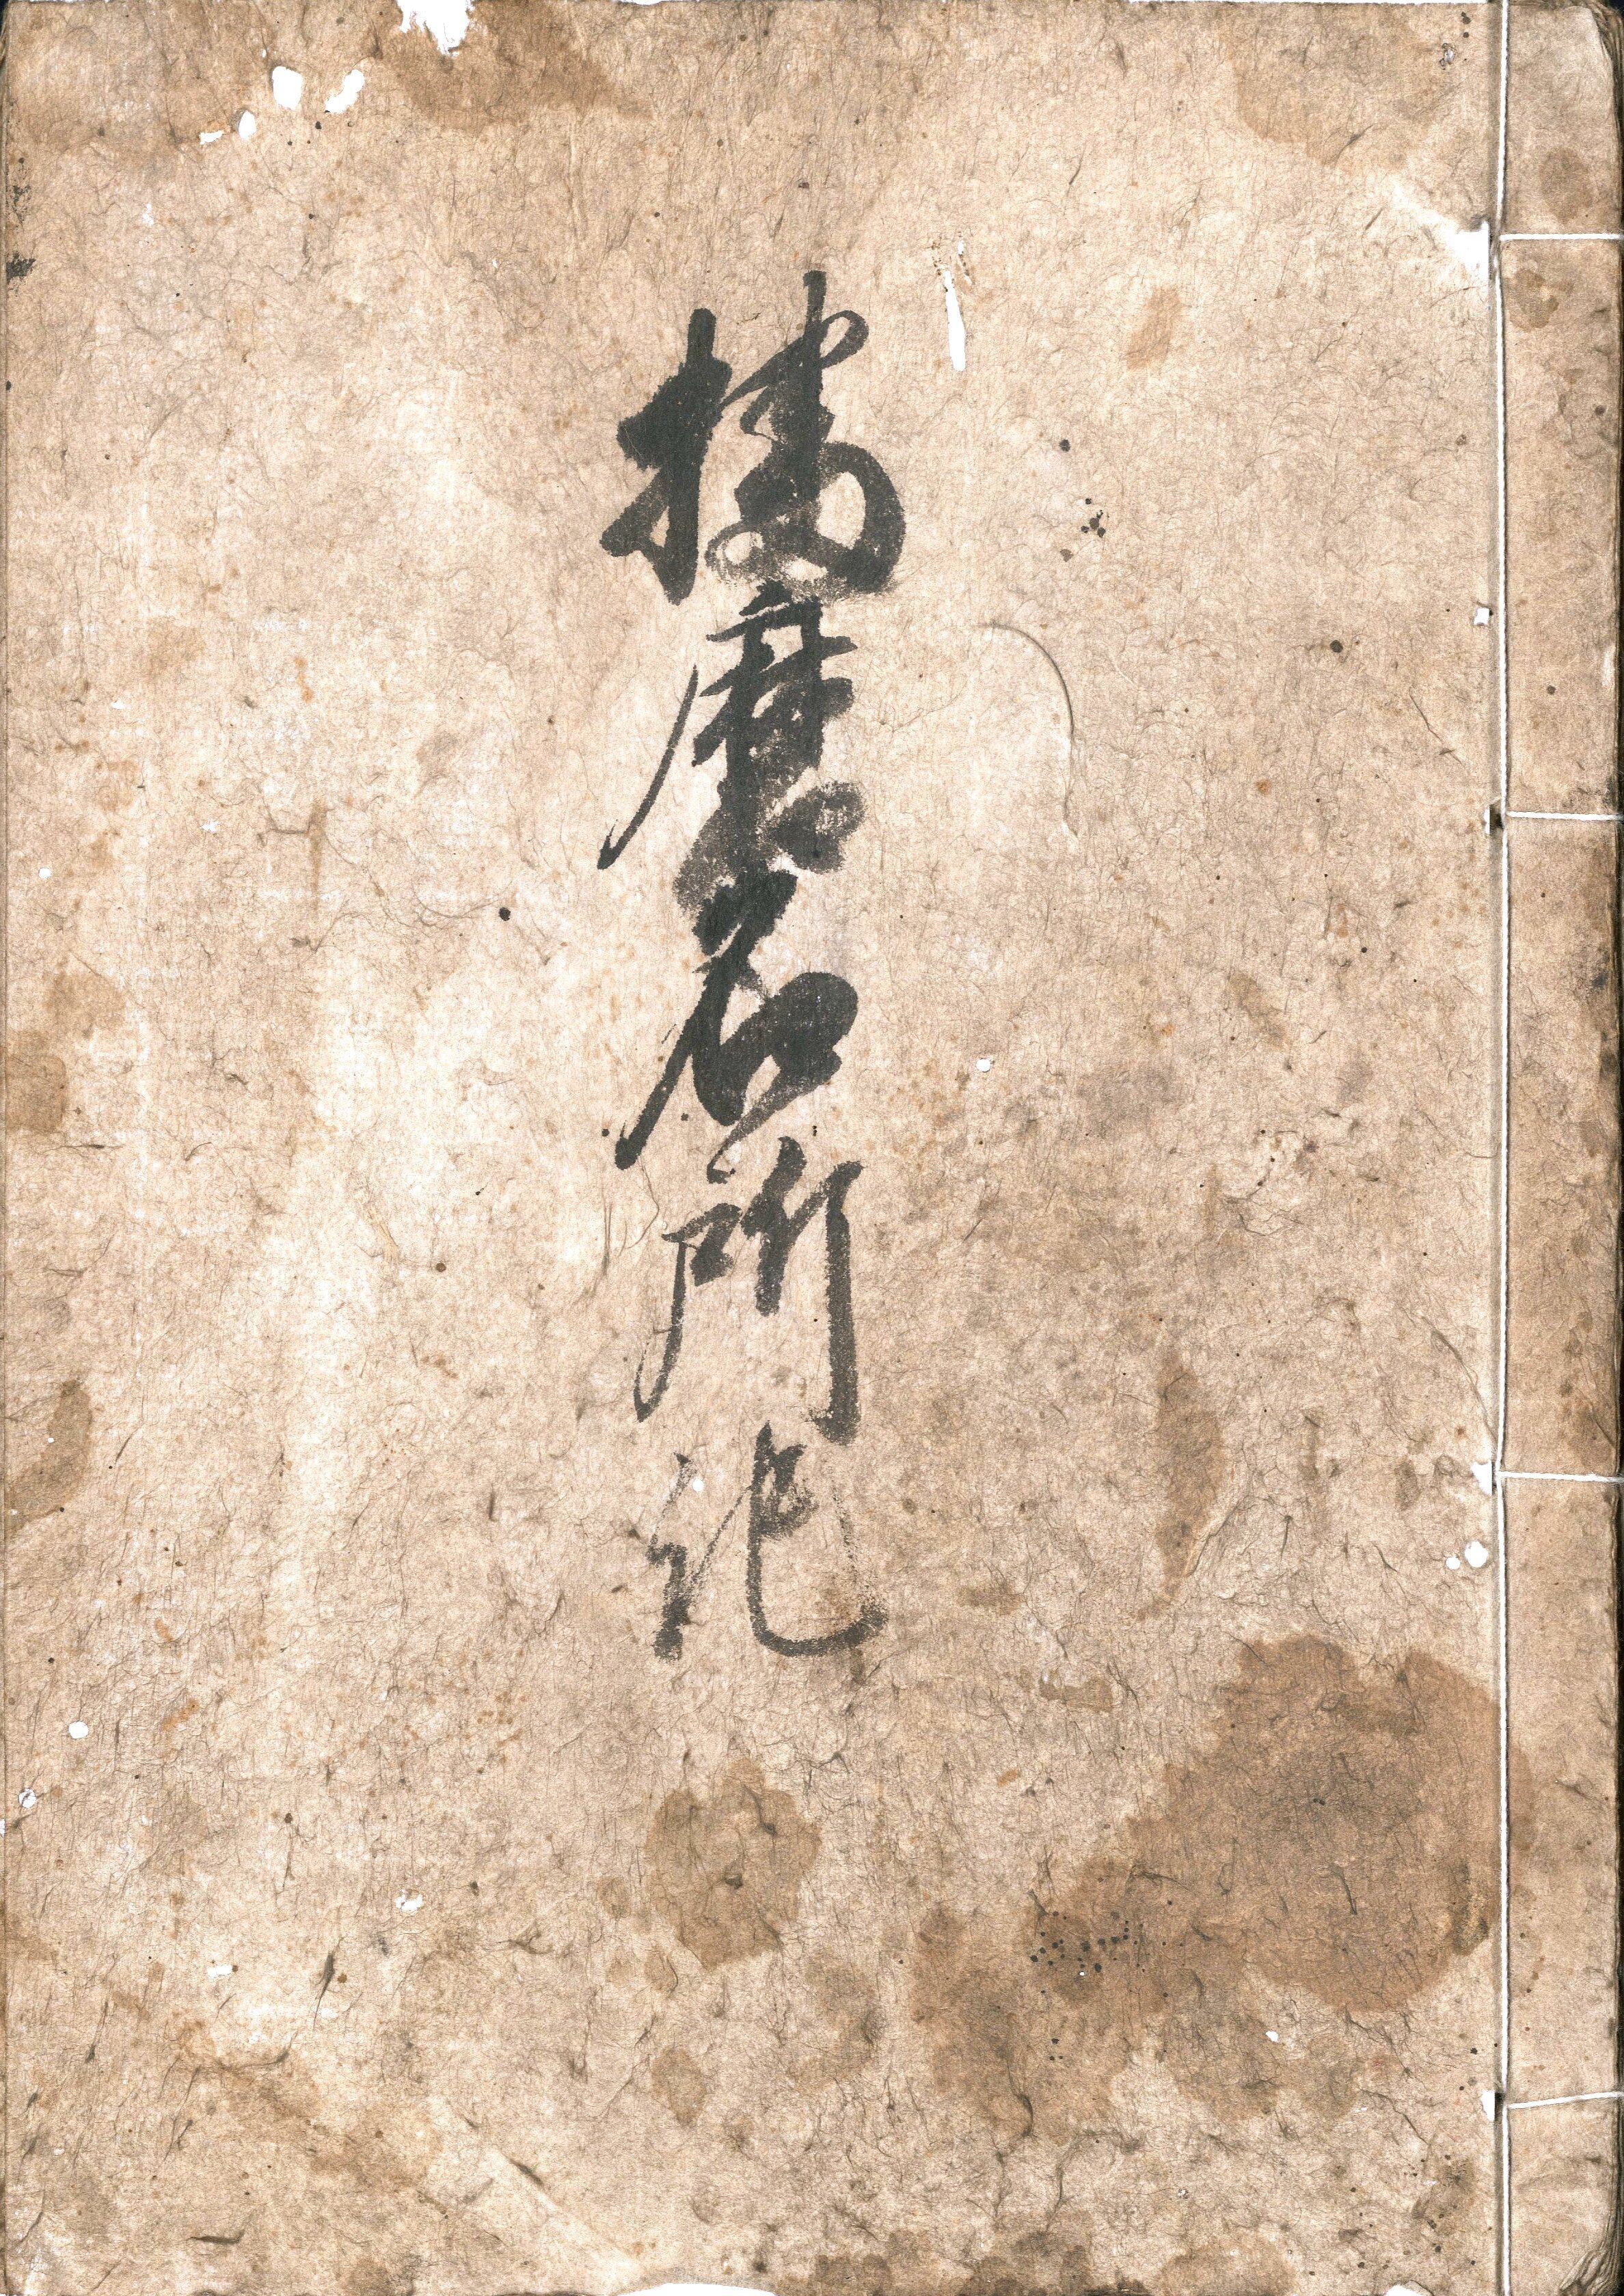 播磨名所記